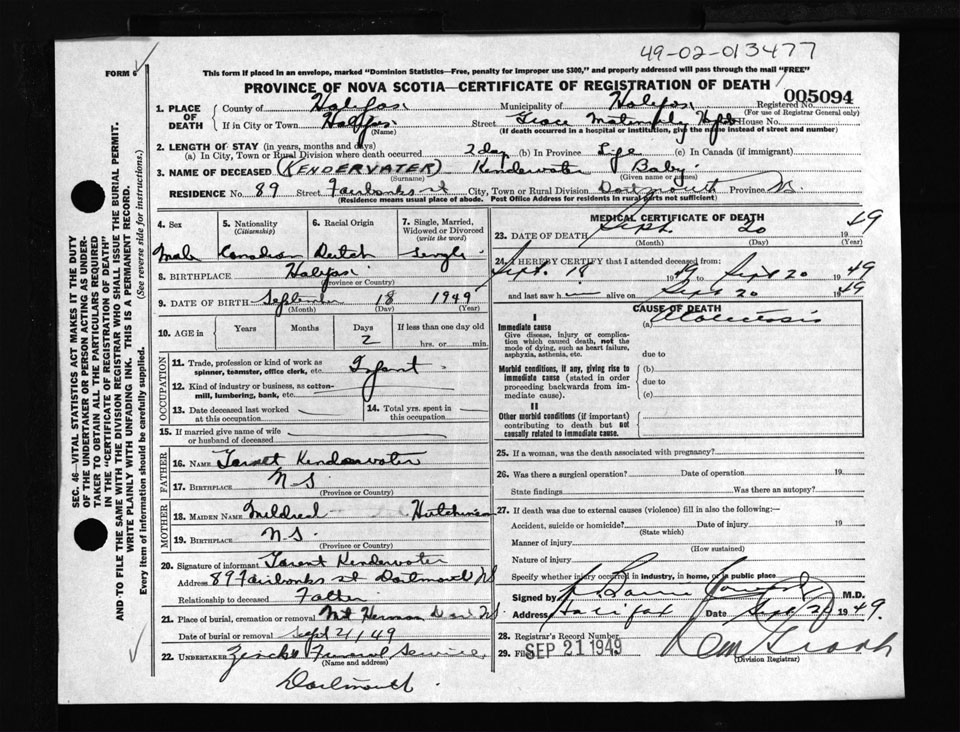 49-02-013477
FORM 6
This form if placed in an envelope, marked "Dominion Statistics—Free, penalty for improper use $300," and properly addressed will pass through the mail "FREE"
PROVINCE OF NOVA SCOTIA—CERTIFICATE OF REGISTRATION OF DEATH
005094
1. PLACE OF DEATH
County of Halifax Municipality of Halifax Registered No.
(For use of Registrar General only)
If in City or Town Halifax Street Grace Maternity House No.
(Name) (If death occurred in a hospital or institution, give the name instead of street and number)
2. LENGTH OF STAY (in years, months and days)
(a) In City, Town or Rural Division where death occurred 2 day (b) In Province Life (c) In Canada (if immigrant)
3. NAME OF DECEASED (KENDERVATER) Kendervater Baby
(Surname) (Given name or names)
RESIDENCE No. 89 Street Fairbanks st City, Town or Rural Division Dartmouth Province N.
(Residence means usual place of abode. Post Office Address for residents in rural parts not sufficient)
4. Sex
Male
5. Nationality
(Citizenship)
Canadian
6. Racial Origin
Dutch
7. Single, Married, Widowed or Divorced
(write the word)
Single
8. BIRTHPLACE Halifax
(Province or Country)
9. DATE OF BIRTH September 18 1949
(Month) (Day) (Year)
10. AGE in Years Months Days If less than one day old
2 hrs. or min.
OCCUPATION
11. Trade, profession or kind of work as spinner, teamster, office clerk, etc. Infant
12. Kind of industry or business, as cotton-mill, lumbering, bank, etc.
13. Date deceased last worked at this occupation
14. Total yrs. spent in this occupation
15. If married give name of wife or husband of deceased
FATHER
16. NAME Kendervater
17. BIRTHPLACE N.S.
(Province or Country)
MOTHER
18. MAIDEN NAME Mildred Hutchinson
19. BIRTHPLACE N.S.
(Province or Country)
20. Signature of informant Kendervater
Address 89 Fairbanks st Dartmouth NS
Relationship to deceased Father
21. Place of burial, cremation or removal Mt Hermon Dart N.S.
Date of burial or removal Sept 21/49
22. UNDERTAKER Zincks Funeral Service,
(Name and address)
Dartmouth
MEDICAL CERTIFICATE OF DEATH
23. DATE OF DEATH Sept. 20 1949
(Month) (Day) (Year)
24. I HEREBY CERTIFY that I attended deceased from
Sept. 18 1949 to Sept 20 1949
and last saw him alive on Sept 20 1949
CAUSE OF DEATH
I
Immediate cause
Give disease, injury or complication which caused death, not the mode of dying, such as heart failure, asphyxia, asthenia, etc.
(a) Atelectasis
due to
Morbid conditions, if any, giving rise to immediate cause (stated in order proceeding backwards from immediate cause).
(b)
due to
(c)
II
Other morbid conditions (if important) contributing to death but not causally related to immediate cause.
25. If a woman, was the death associated with pregnancy?
26. Was there a surgical operation? Date of operation 19
State findings Was there an autopsy?
27. If death was due to external causes (violence) fill in also the following:—
Accident, suicide or homicide? Date of injury 19
(State which)
Manner of injury
(How sustained)
Nature of injury
Specify whether injury occurred in industry, in home, or in public place
Signed by M.D.
Address Halifax Date Sept 21 1949.
28. Registrar's Record Number
29. Filed SEP 21 1949
(Division Registrar)
SEC. 46—VITAL STATISTICS ACT MAKES IT THE DUTY OF THE UNDERTAKER OR PERSON ACTING AS UNDERTAKER TO OBTAIN ALL THE PARTICULARS REQUIRED IN THE "CERTIFICATE OF REGISTRATION OF DEATH" AND TO FILE THE SAME WITH THE DIVISION REGISTRAR WHO SHALL ISSUE THE BURIAL PERMIT.
WRITE PLAINLY WITH UNFADING INK. THIS IS A PERMANENT RECORD.
Every item of information should be carefully supplied. (See reverse side for instructions.)